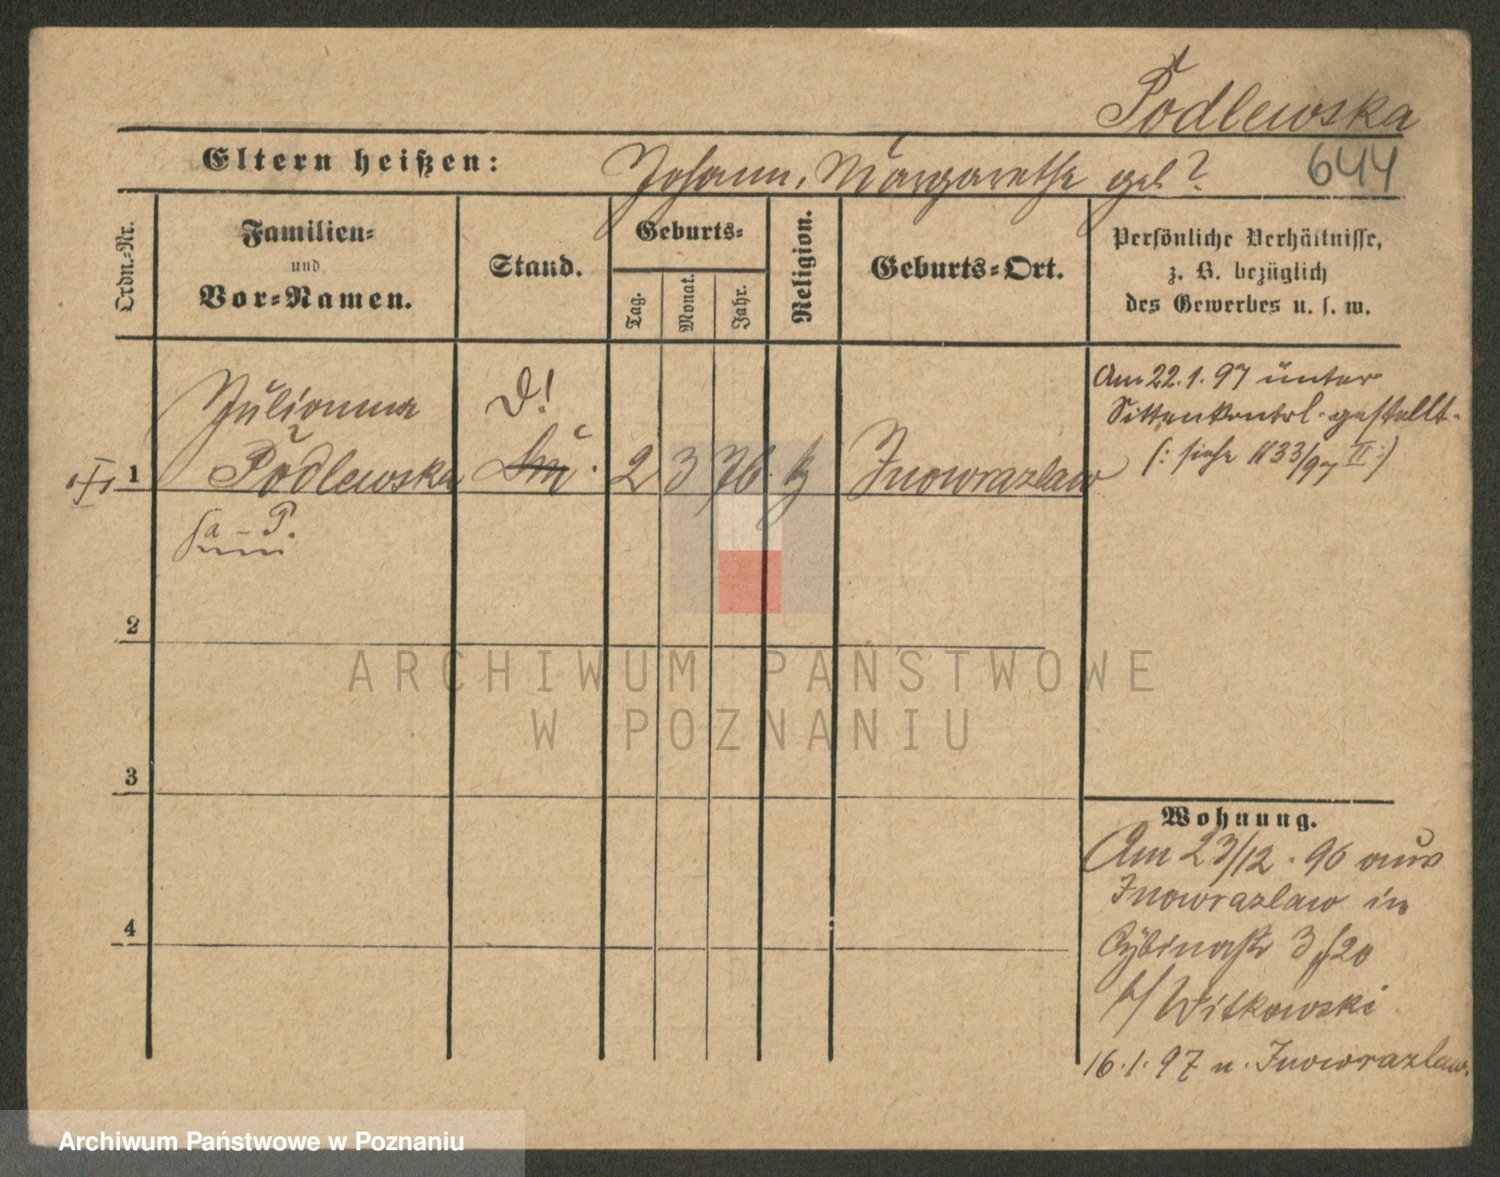 Podlewska
Eltern heißen: Johann, Margarethe geb?
644
Ordn.-Nr.
Familien-
und
Vor-Namen.
Stand.
Geburts-
Tag.
Monat.
Jahr.
Religion.
Geburts-Ort.
Persönliche Verhältnisse,
z. B. bezüglich
des Gewerbes u. s. w.
Julianna
D!
Am 22.1.97 unter
Sittenkontrl. gestellt.
(: siehe 1133/97 II :)
1 Podlewska 2 3 76. k Inowrazlaw
a – P.
2
3
4
Wohnung.
Am 23/12. 96 aus
Inowrazlaw in
Cybinastr 3 f20
b/ Witkowski
16.1.97 n. Inowrazlaw.
ARCHIWUM PAŃSTWOWE
W POZNANIU
Archiwum Państwowe w Poznaniu